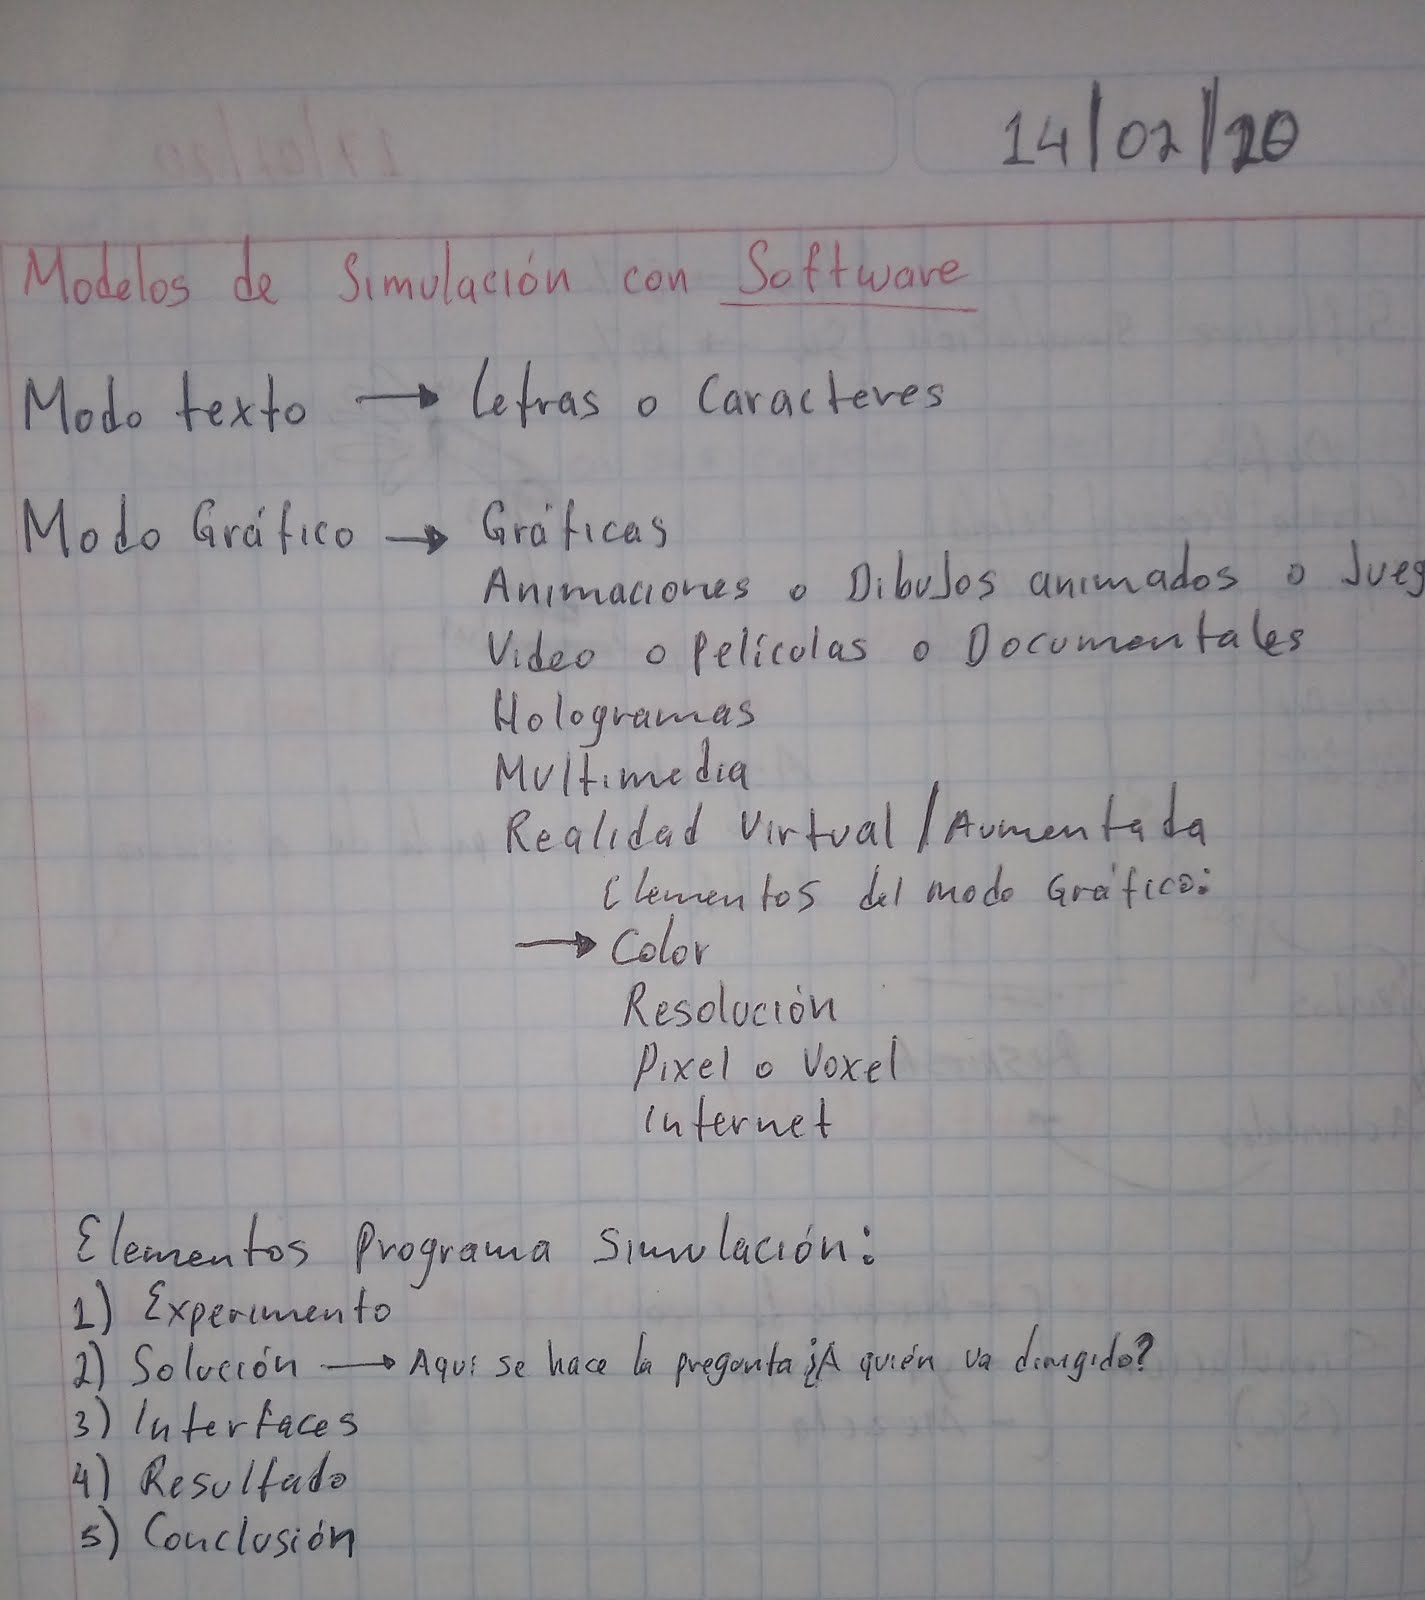 14/02/20
Modelos de Simulación con Software
Modo texto → Letras o Caracteres
Modo Gráfico → Gráficas
Animaciones o Dibujos animados o Jueg
Video o Películas o Documentales
Hologramas
Multimedia
Realidad Virtual / Aumentada
Elementos del modo Gráfico:
→ Color
Resolución
Pixel o Voxel
Internet
Elementos Programa Simulación:
1) Experimento
2) Solución → Aquí se hace la pregunta ¿A quién va dirigido?
3) Interfaces
4) Resultado
5) Conclusión